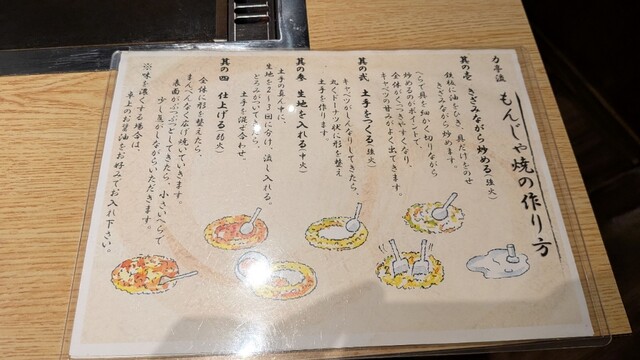 力亭流
もんじゃ焼の作り方
其の壱 きざみながら炒める(強火)
鉄板に油をひき、具だけをのせ
きざみながら炒めます。
へらで具を細かく切りながら
炒めるのがポイントで、
全体がくっつきやすくなり、
キャベツの甘みがよく出てきます。
其の弐 土手をつくる(強火)
キャベツがしんなりしてきたら、
丸くドーナツ状に形を整え
土手を作ります。
其の参 生地を入れる(中火)
土手の真ん中に、
生地を2~3回に分け、流し入れる。
とろみがついてきたら、
土手を混ぜ合わせ、
其の四 仕上げる(弱火)
全体に形を整えたら、
まんべんなく広げ焼いていきます。
表面がぶつぶつとしてきたら、小さいへらで
少し焦がしながらいただきます。
※味を濃くする場合は、
卓上のお醤油をお好みでお入れ下さい。